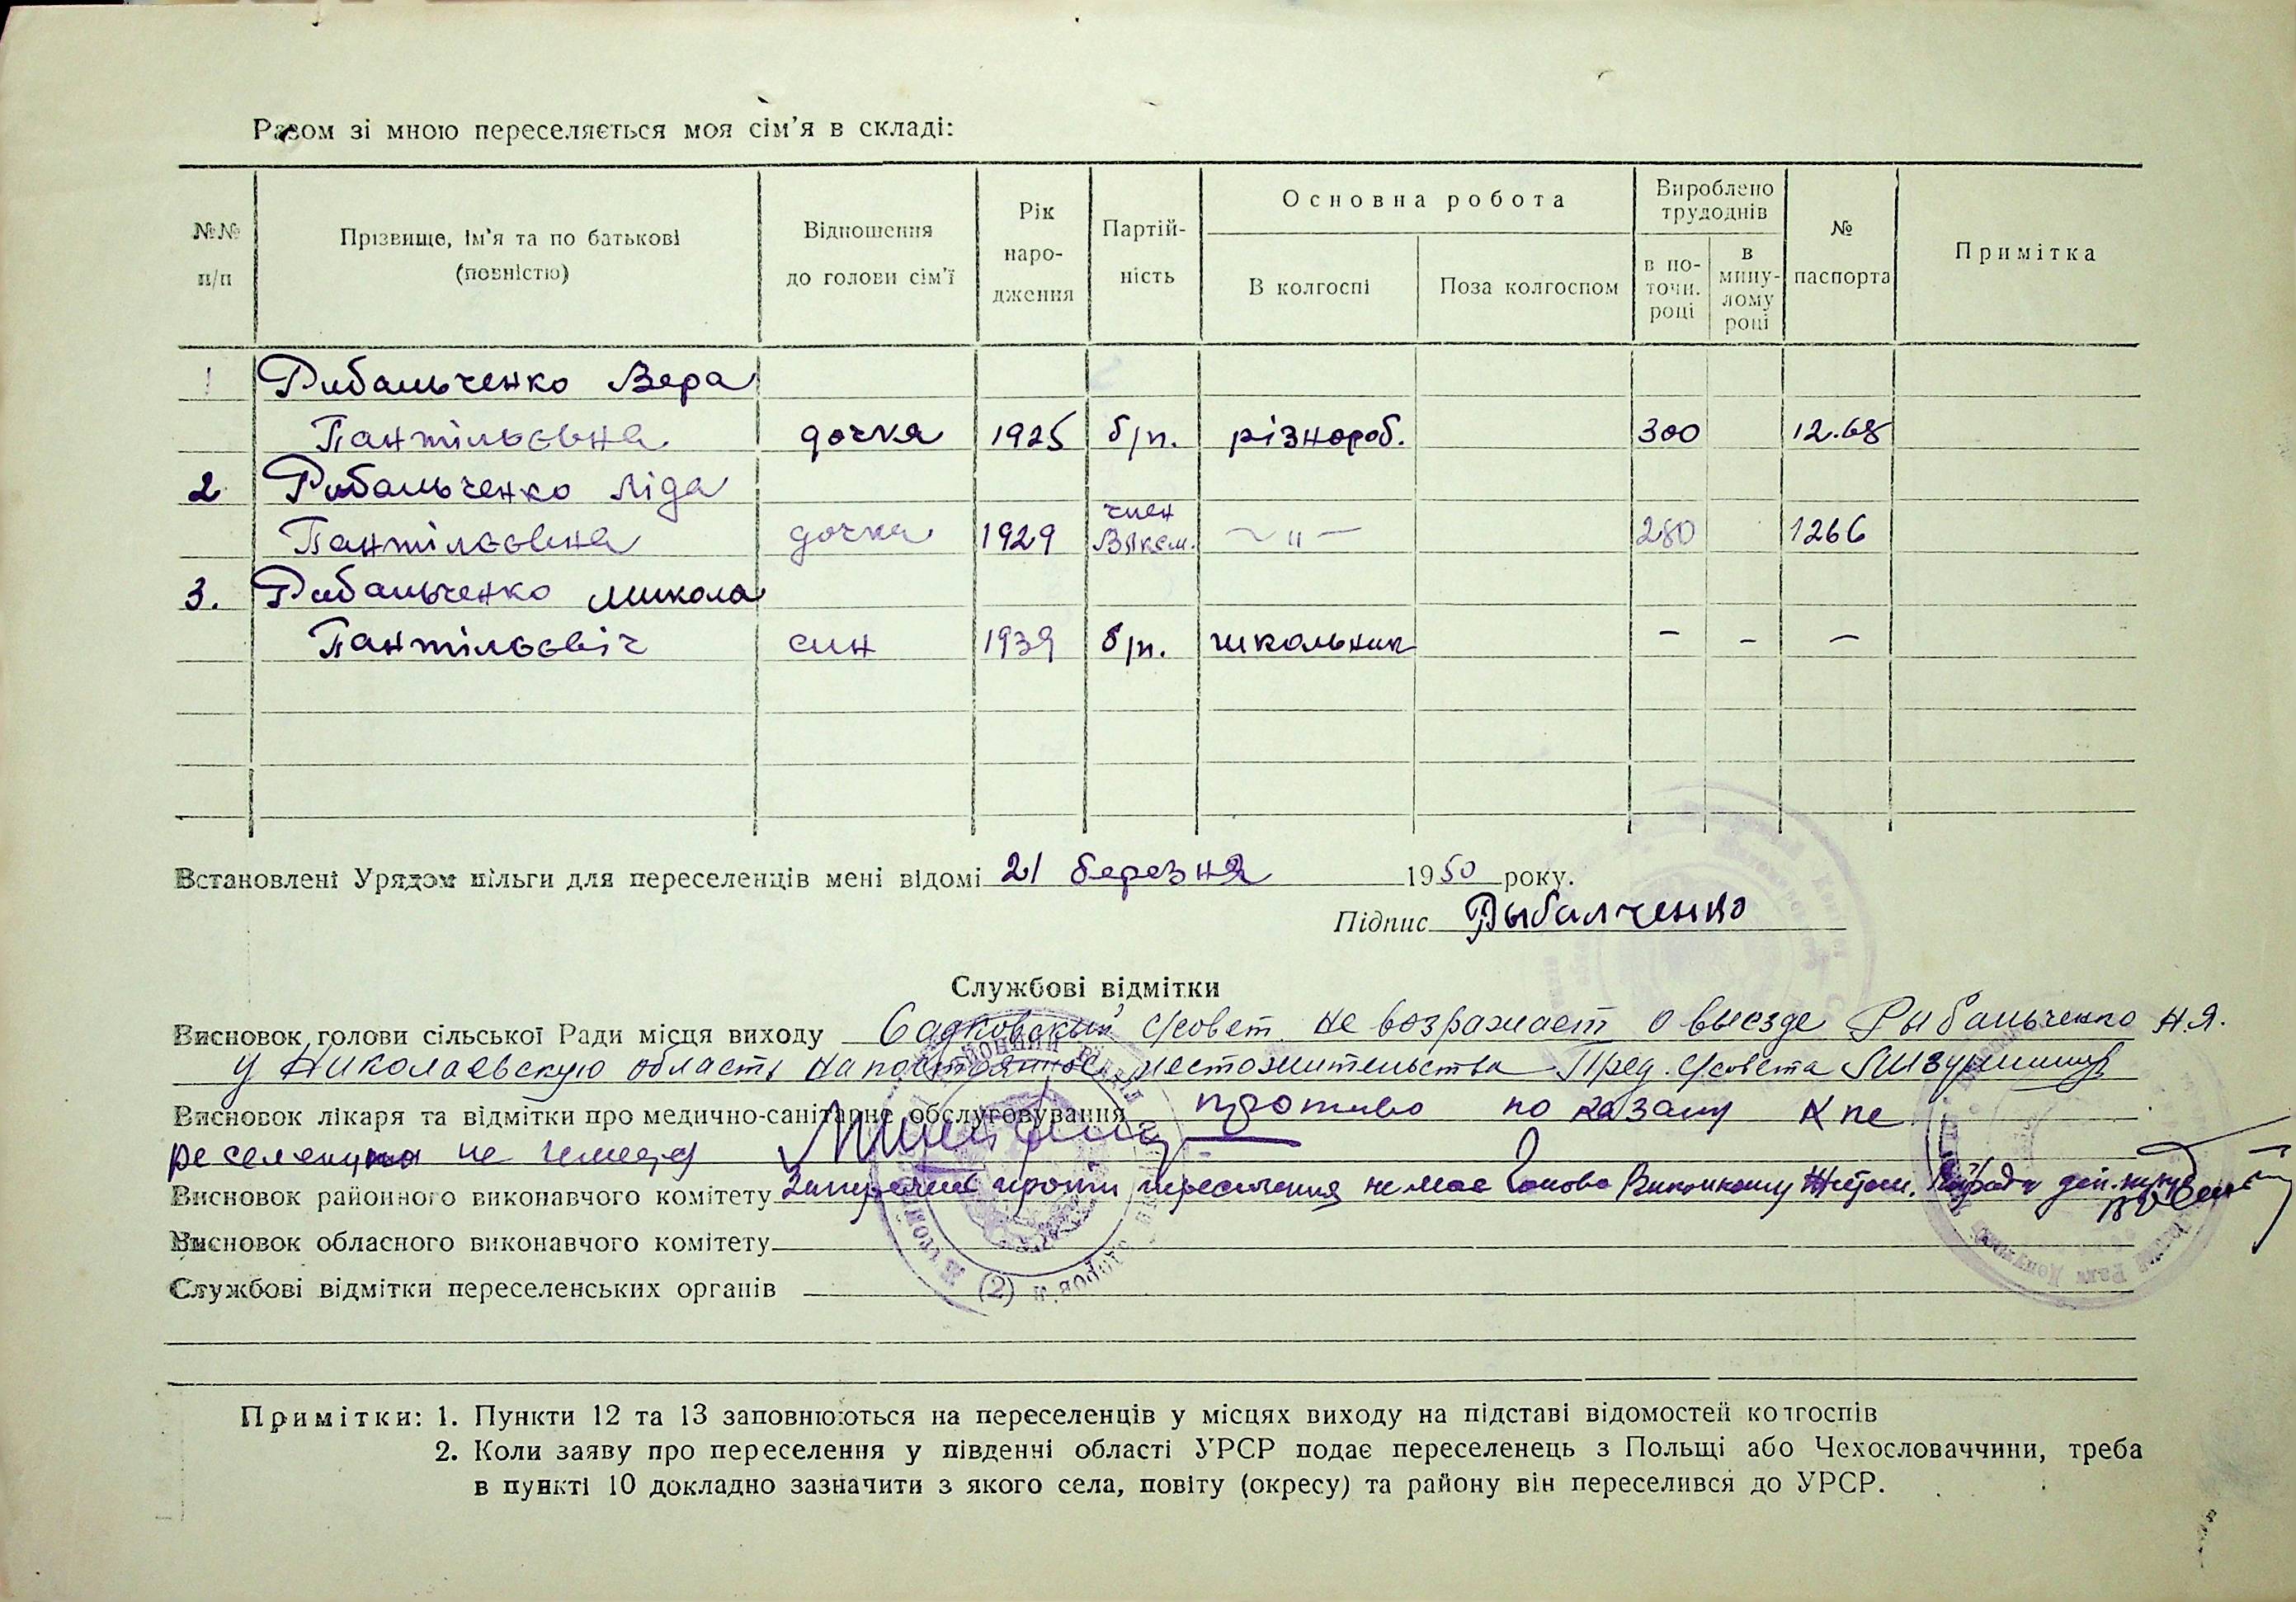 Разом зі мною переселяється моя сім'я в складі:
№№ п/п
Прізвище, ім'я та по батькові (повністю)
Відношення до голови сім'ї
Рік народження
Партій-ність
Основна робота
В колгоспі
Поза колгоспом
Вироблено трудоднів
в по-точн. році
в мину-лому році
№ паспорта
Примітка
1 Рибальченко Вера
Пантільєвна дочка 1925 б/п. різнороб. 300 12.68
2 Рибальченко Ліда
Пантілєєвна дочка 1929 член 〃 280 1266
3. Рибальченко Микола
Пантільєвіч син 1939 б/п. школьник – – –
Встановлені Урядом пільги для переселенців мені відомі 21 березня 1950 року.
Підпис Рыбалченко
Службові відмітки
Висновок голови сільської Ради місця виходу Садковский с/совет не возражает о выезде Рыбальченко Н.Я.
у Николаевскую область на постоянное местожительства Пред. с/совета
Висновок лікаря та відмітки про медично-санітарне обслуговування противо по казану к пе
реселению не имеет
Висновок районного виконавчого комітету проти переселення немає Голова Виконкому
Висновок обласного виконавчого комітету
Службові відмітки переселенських органів
(2)
Примітки: 1. Пункти 12 та 13 заповнюються на переселенців у місцях виходу на підставі відомостей колгоспів
2. Коли заяву про переселення у південні області УРСР подає переселенець з Польщі або Чехословаччини, треба
в пункті 10 докладно зазначити з якого села, повіту (окресу) та району він переселився до УРСР.